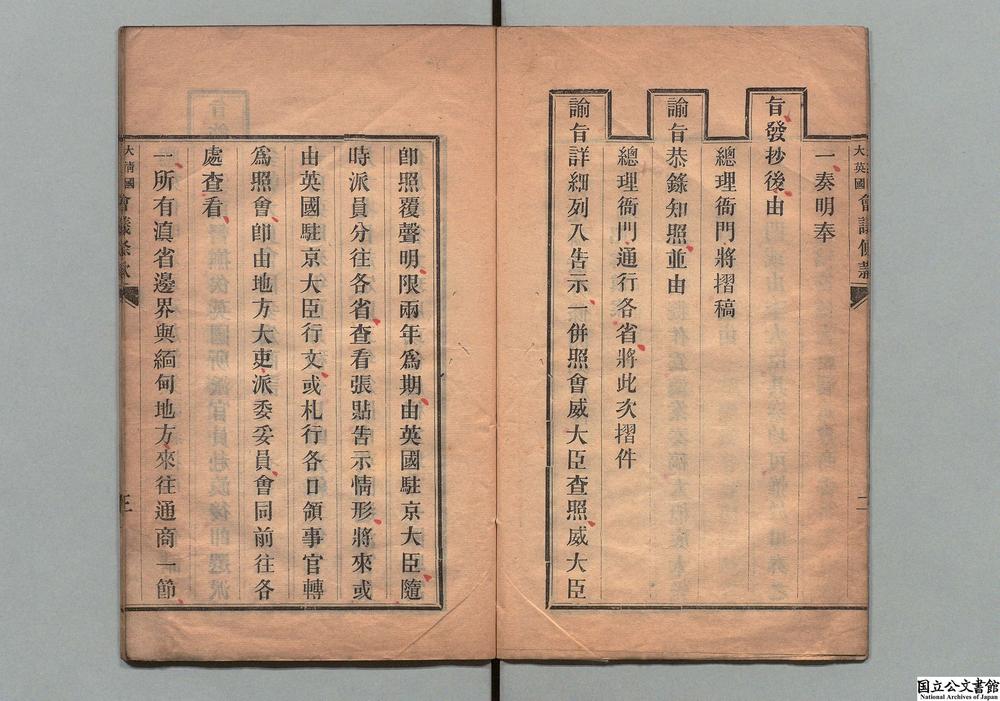 大英國會議條款
二
一奏明奉
旨發抄後由
總理衙門將摺稿
諭旨恭錄知照並由
總理衙門通行各省將此次摺件
諭旨詳細列入告示一併照會威大臣查照威大臣
卽照覆聲明限兩年爲期由英國駐京大臣隨
時派員分往各省查看張貼告示情形將來或
由英國駐京大臣行文或札行各口領事官轉
爲照會卽由地方大吏派委妥員會同前往各
處查看
一所有滇省邊界與緬甸地方來往通商一節
大淸國會議條款
三
国立公文書館
National Archives of Japan